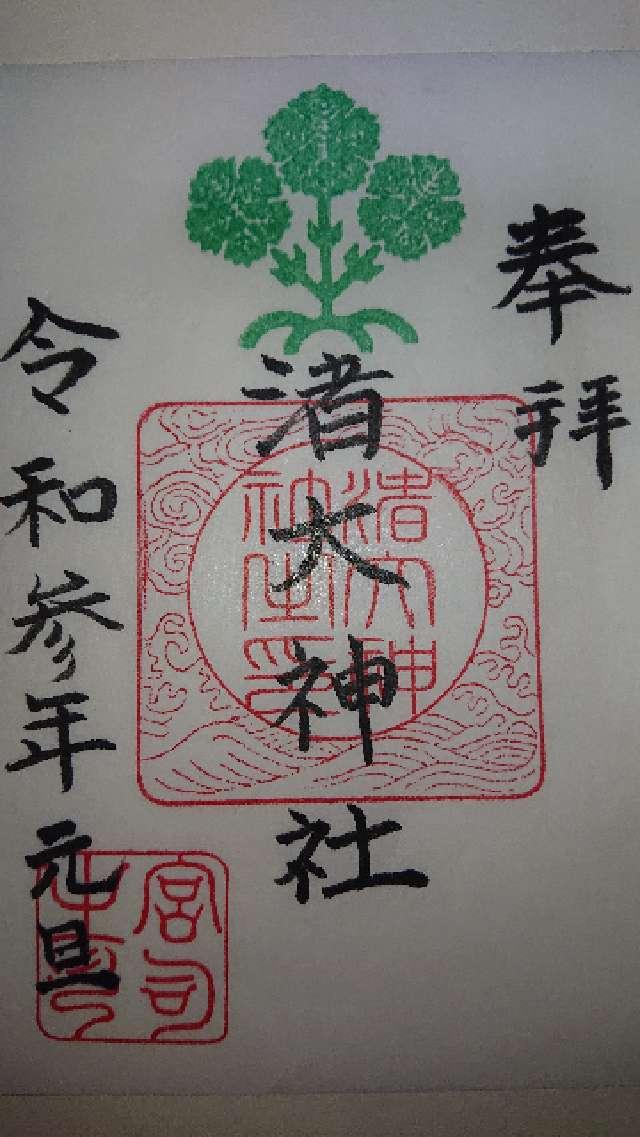 奉拝
渚大神社
渚大神
社生印
令和参年元旦
宮司